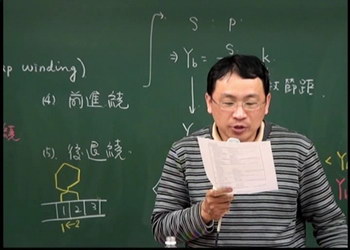 ap winding)
(4) 前進繞
繞
(5) 後退繞.
1 2 3
1←2
S P.
⇒ Yb = S k
節距.
Y
< Y